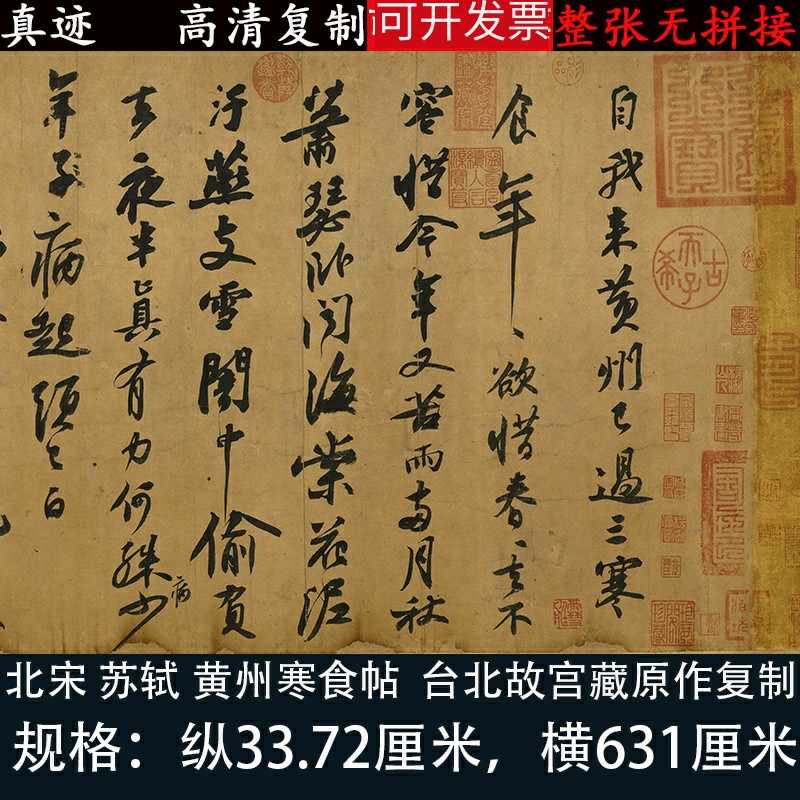 真迹 高清复制 可开发票 整张无拼接
自我来黄州已過三寒
食年、欲惜春、去不
容惜今年又苦雨兩月秋
蕭瑟卧聞海棠花泥
汙燕支雪闇中偷負
去夜半真有力何殊少
病
年子病起頭已白
古希天子
北宋 苏轼 黄州寒食帖 台北故宫藏原作复制
规格：纵33.72厘米，横631厘米